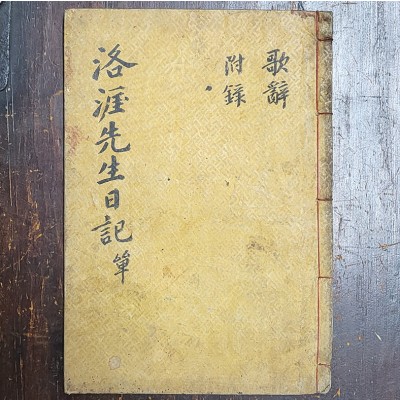 歌辭
附錄
洛涯先生日記 單